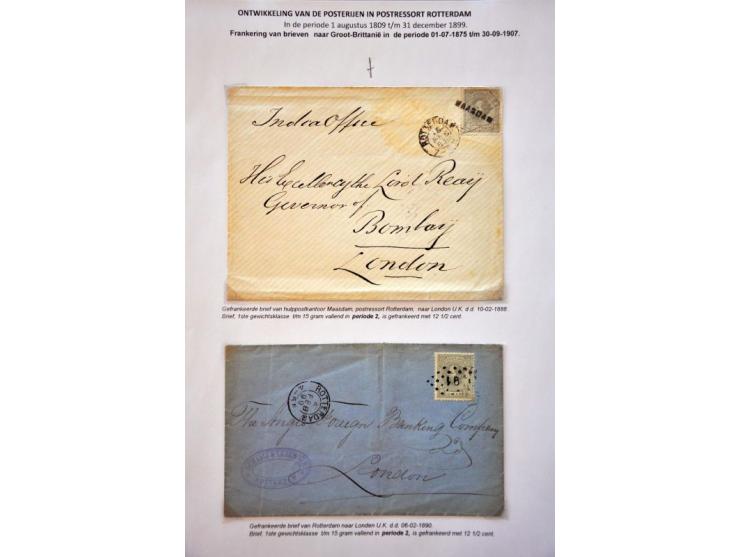 ONTWIKKELING VAN DE POSTERIJEN IN POSTRESSORT ROTTERDAM
In de periode 1 augustus 1809 t/m 31 december 1899.
Frankering van brieven naar Groot-Brittanië in de periode 01-07-1875 t/m 30-09-1907.
MAASDAM
ROTTERDAM
India Office
His Excellency the Lord Reay
Governor of
Bombay
London
Gefrankeerde brief van hulppostkantoor Maasdam, postressort Rotterdam, naar London U.K. d.d. 10-02-1888.
Brief, 1ste gewichtsklasse t/m 15 gram vallend in periode 2, is gefrankeerd met 12 1/2 cent.
91
ROTTERDAM
FEB
90
The Anglo Foreign Banking Company
London
Gefrankeerde brief van Rotterdam naar Londen U.K. d.d. 06-02-1890.
Brief, 1ste gewichtsklasse t/m 15 gram vallend in periode 2, is gefrankeerd met 12 1/2 cent.